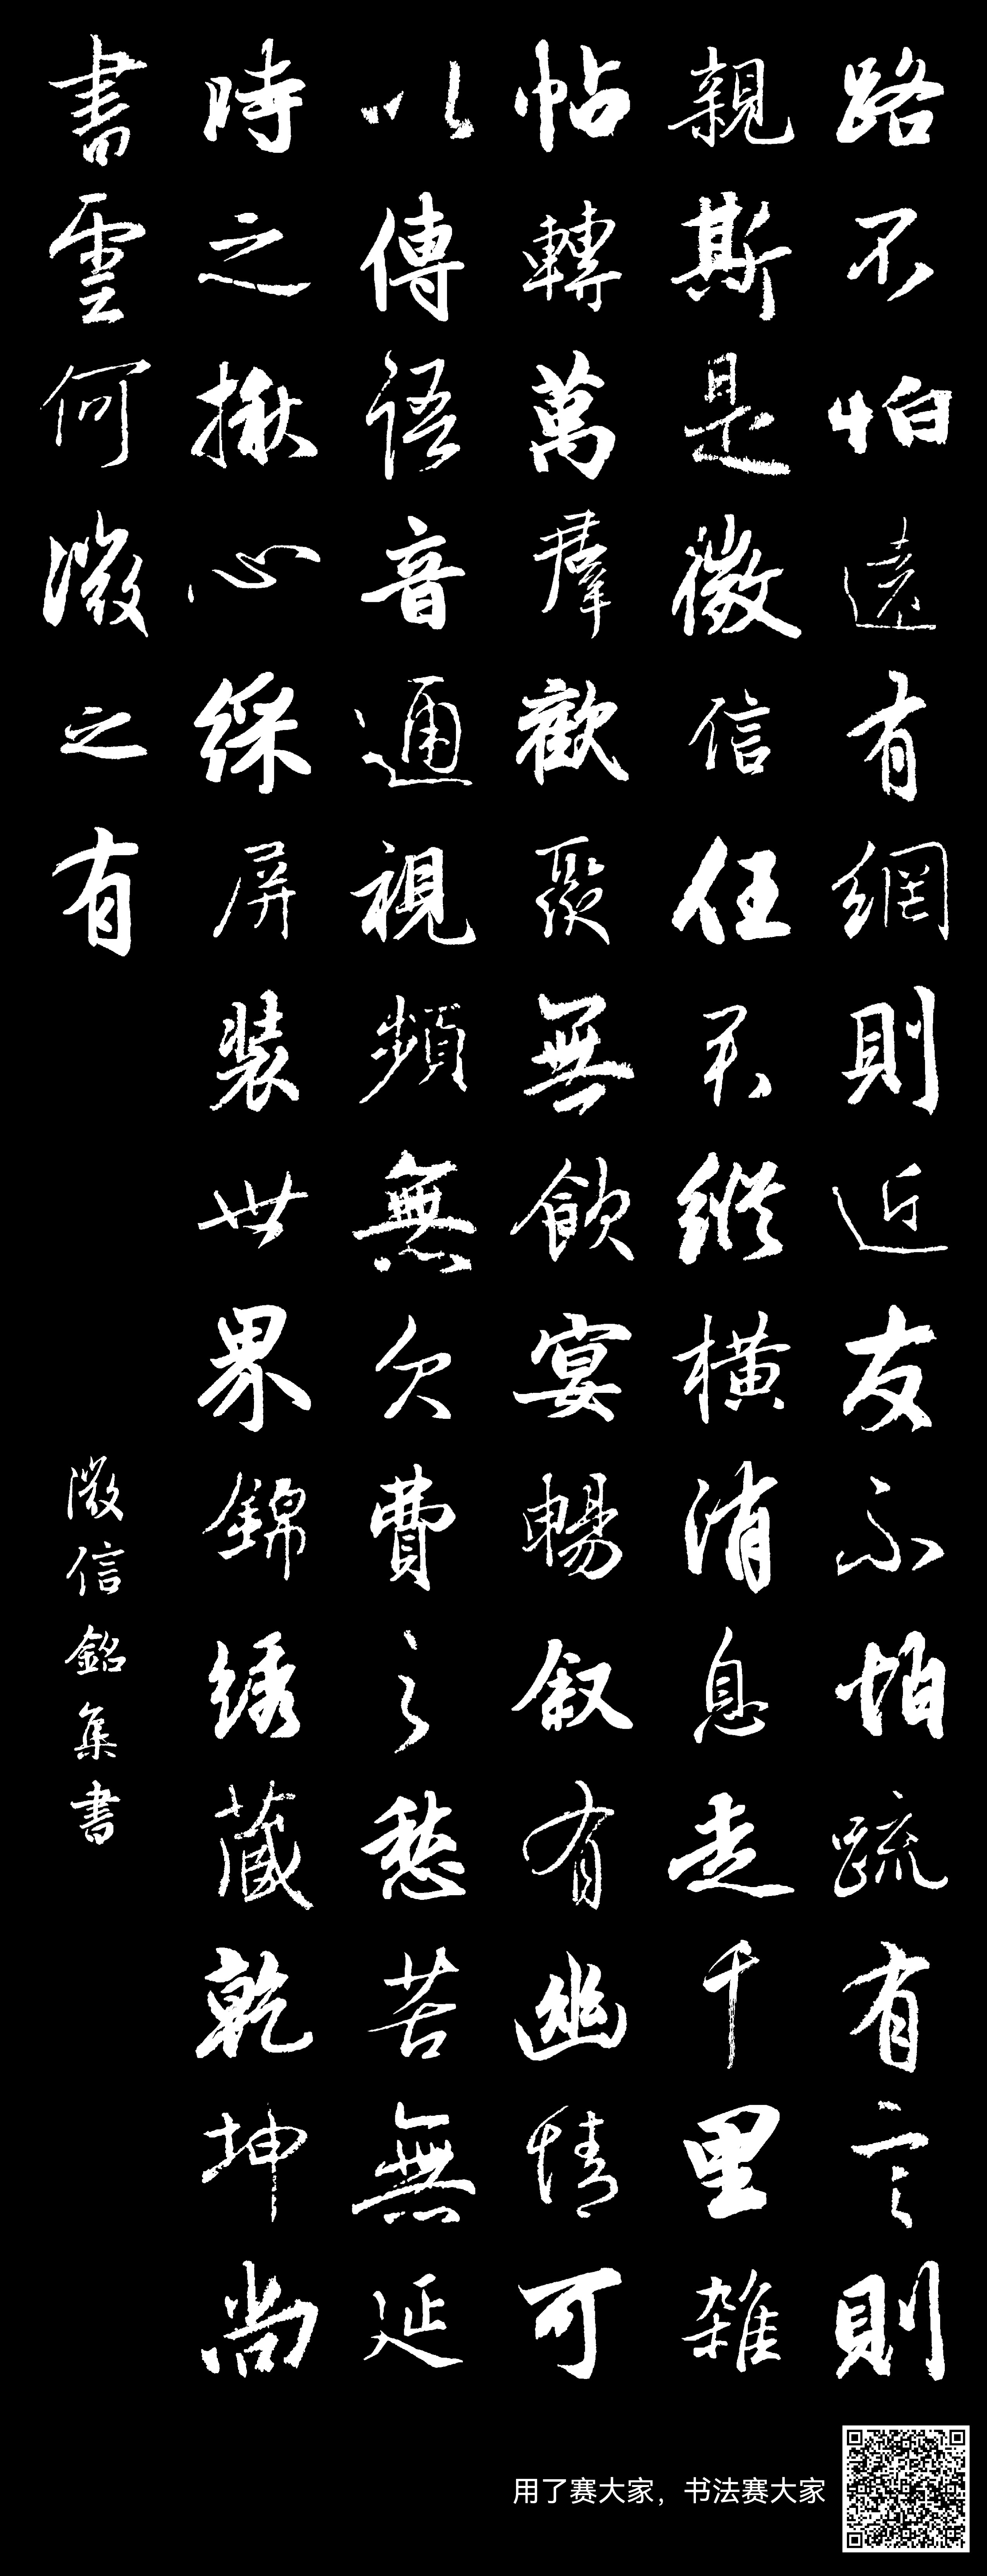 路不怕遠有網則近友不怕疏有言則
親斯是微信任君縱橫消息走千里雜
帖轉萬群歡聚無飲宴暢叙有幽情可
以傳語音通視頻無欠費之愁苦無延
時之揪心綵屏裝世界錦绣藏乾坤尚
書雲何微之有
微信銘集書
用了赛大家，书法赛大家